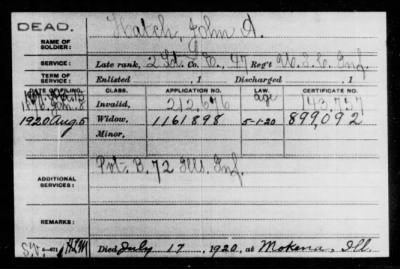 DEAD.
Hatch, John A.
NAME OF SOLDIER:
SERVICE: Late rank, 2 Lt. Co. E, 47 Reg't U.S.C. Inf.
TERM OF SERVICE: Enlisted , 1 Discharged , 1
DATE OF FILING. CLASS. APPLICATION NO. LAW. CERTIFICATE NO.
Invalid, 212,676 age 143,757
1920 Aug 5 Widow, 1161898 5-1-20 899,092
Minor,
ADDITIONAL SERVICES: Pvt. B. 72 Ill. Inf.
REMARKS:
Died July 17, 1920, at Mokena, Ill.